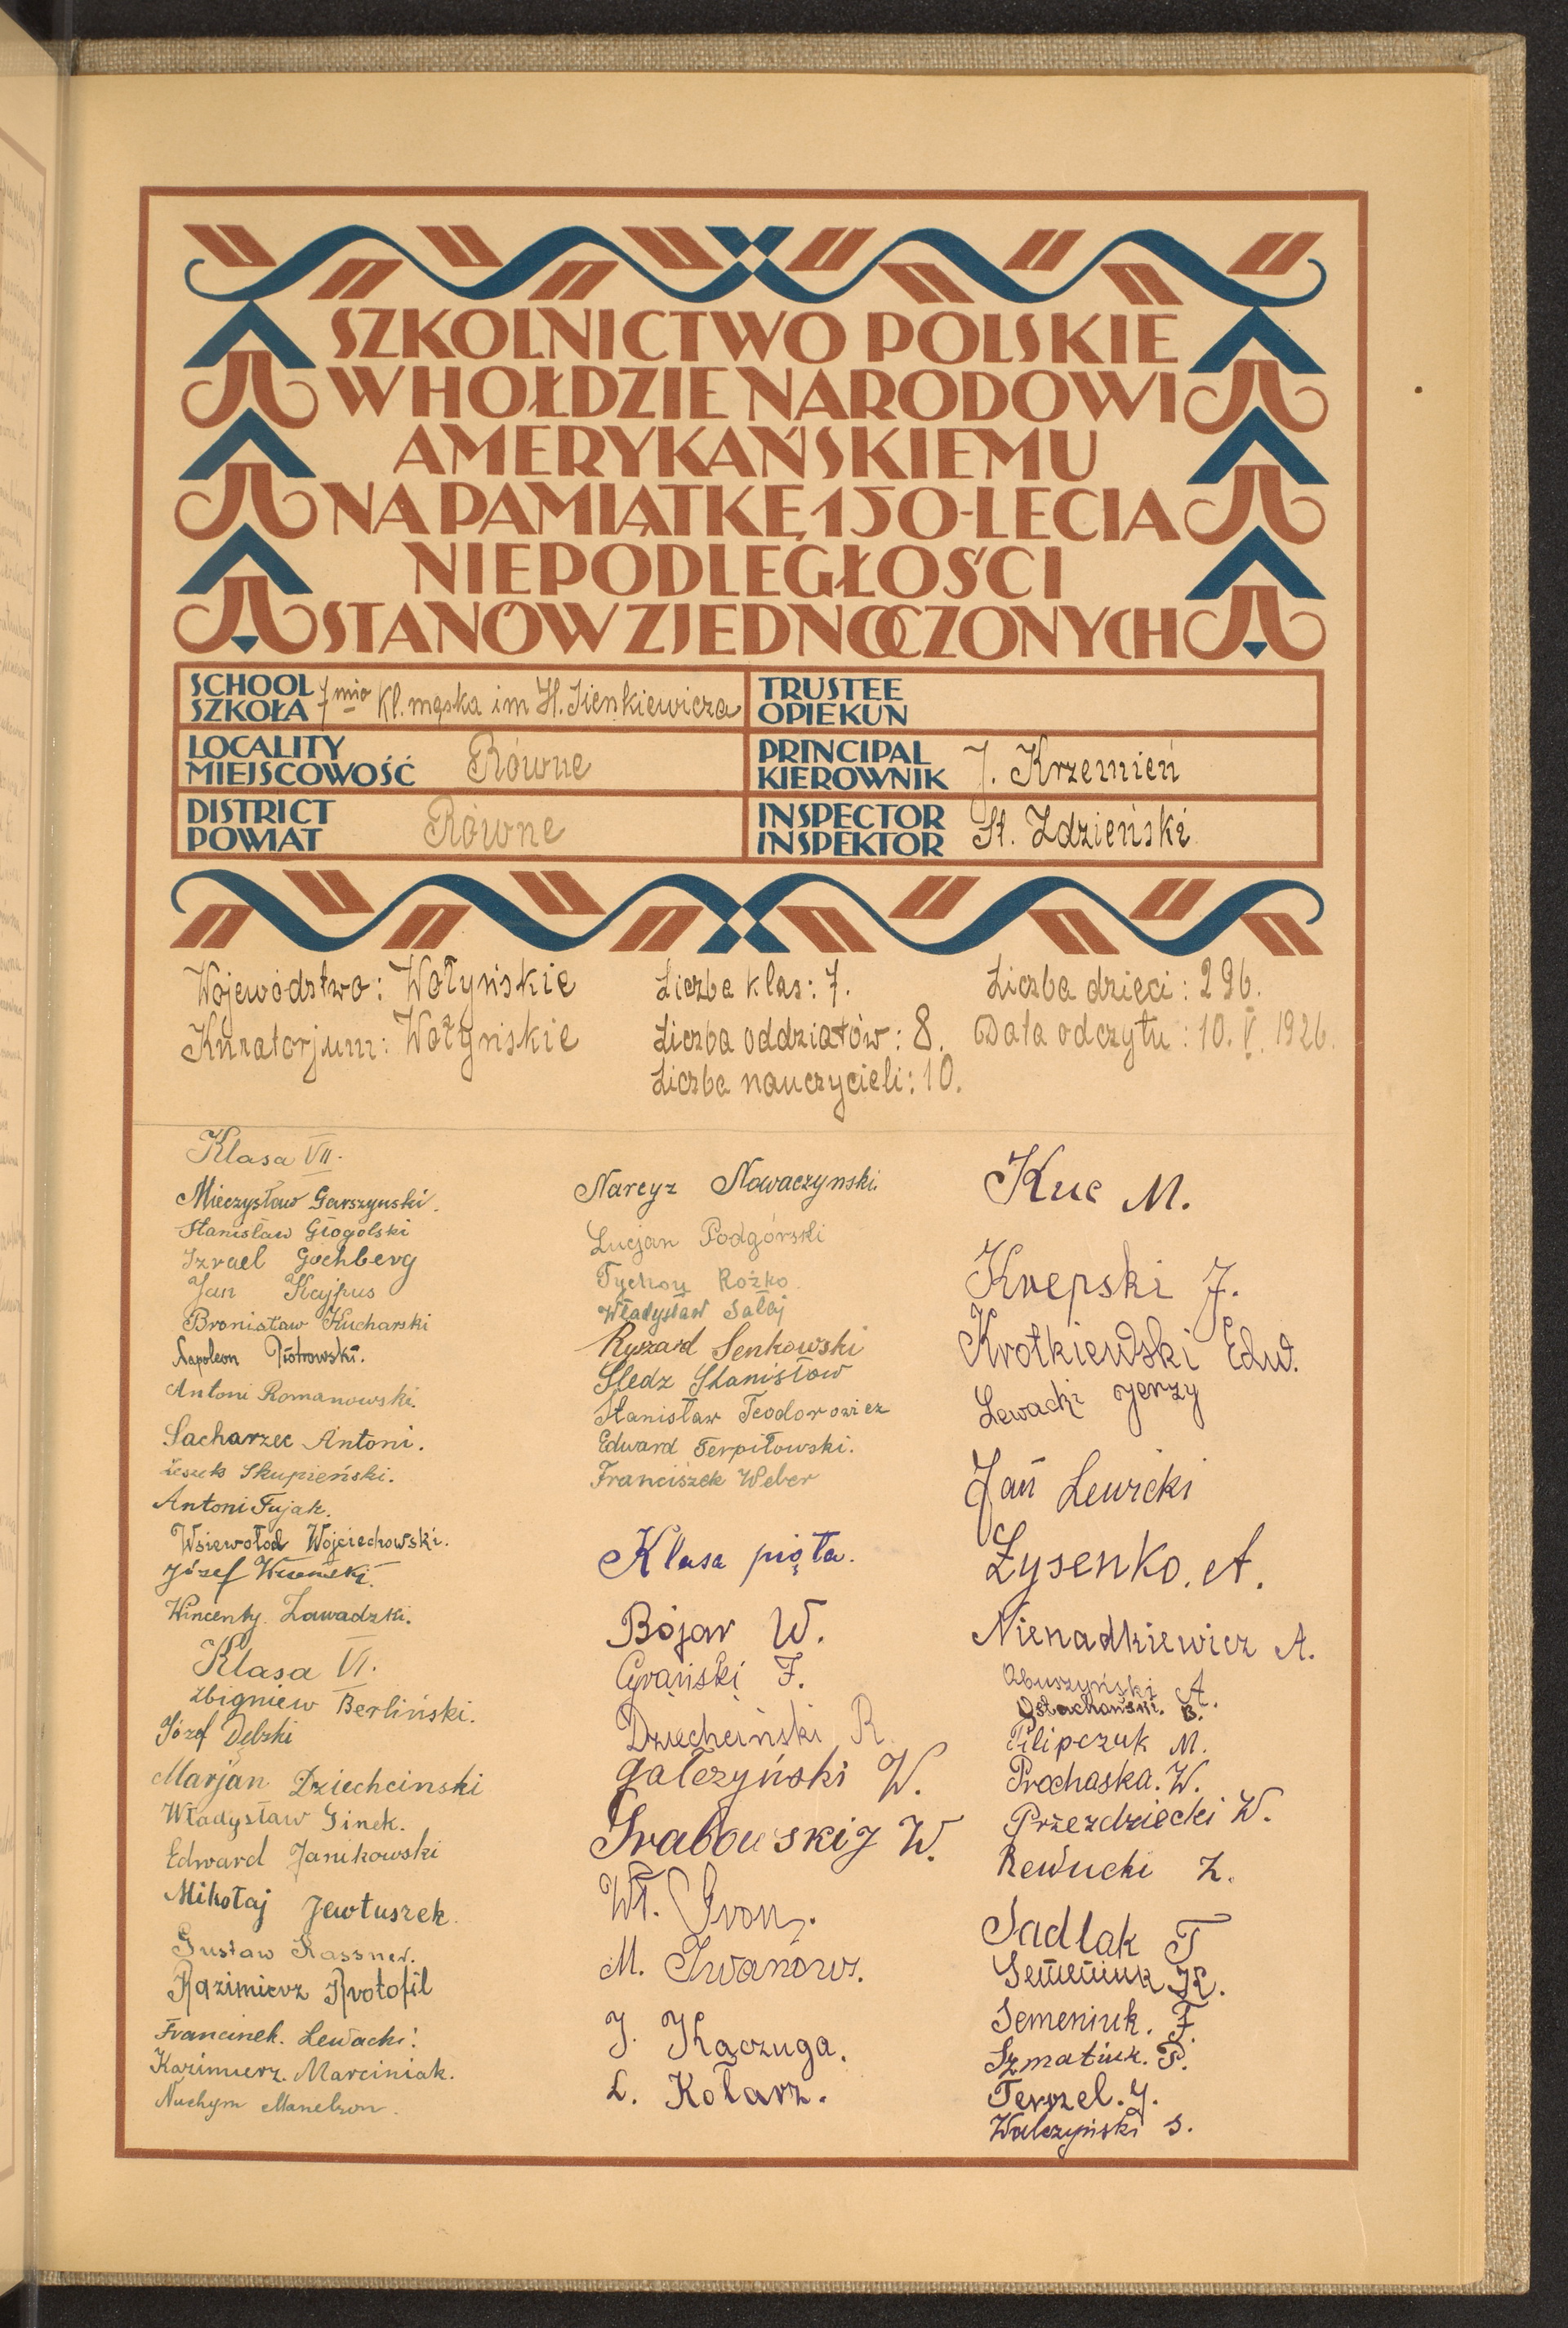 SZKOLNICTWO POLSKIE
W HOŁDZIE NARODOWI
AMERYKAŃSKIEMU
NA PAMIĄTKĘ 150-LECIA
NIEPODLEGŁOŚCI
STANÓW ZJEDNOCZONYCH
SCHOOL
SZKOŁA 7mio Kl. męska im H. Sienkiewicza
TRUSTEE
OPIEKUN
LOCALITY
MIEJSCOWOŚĆ Równe
PRINCIPAL
KIEROWNIK J. Krzemień
DISTRICT
POWIAT Równe
INSPECTOR
INSPEKTOR St. Zdzieński
Województwo: Wołyńskie
Kuratorjum: Wołyńskie
Liczba klas: 7.
Liczba oddziałów: 8.
Liczba nauczycieli: 10.
Liczba dzieci: 296.
Data odczytu: 10. V. 1926.
Klasa VII.
Mieczysław Garszynski.
Stanisław Głogolski
Izrael Gochberg
Jan Kajpus
Bronisław Kucharski
Napoleon Piotrowski.
Antoni Romanowski.
Sacharzec Antoni.
Leszek Skupieński.
Antoni Tujak.
Wsiewołod Wojciechowski.
Józef
Wincenty Zawadzki.
Klasa VI.
Zbigniew Berliński.
Józef Dębski
Marjan Dziechcinski
Władysław Ginek.
Edward Janikowski
Mikołaj Jewtuszek.
Gustaw Kassner.
Kazimierz Krotofil
Franciszek. Lewacki.
Kazimierz. Marciniak.
Nuchym Manelzon.
Narcyz Nowaczynski
Lucjan Podgórski
Tychon Rożko
Władysław Sałaj
Ryszard Senkowski
Śledz Stanisław
Stanisław Teodorowicz
Edward Terpiłowski.
Franciszek Weber
Klasa piąta.
Bojar W.
Cyrański F.
Dziechciński R.
Gałczyński W.
Grabowskij W.
Wł. Gron.
M. Iwanow.
J. Kączuga.
L. Kołarz.
Kuc M.
Krepski J.
Krotkiewski Edw.
Lewacki Jerzy
Jan Lewicki
Łysenko. A.
Nienadkiewicz A.
Obuszyński A.
Ostachowski. B.
Pilipczuk M.
Prochaska. W.
Przezdziecki W.
Rewucki Z.
Sadlak T
Semeniuk K.
Semeniuk. F.
Szmatiuk. P.
Terszel. J.
Walczyński S.